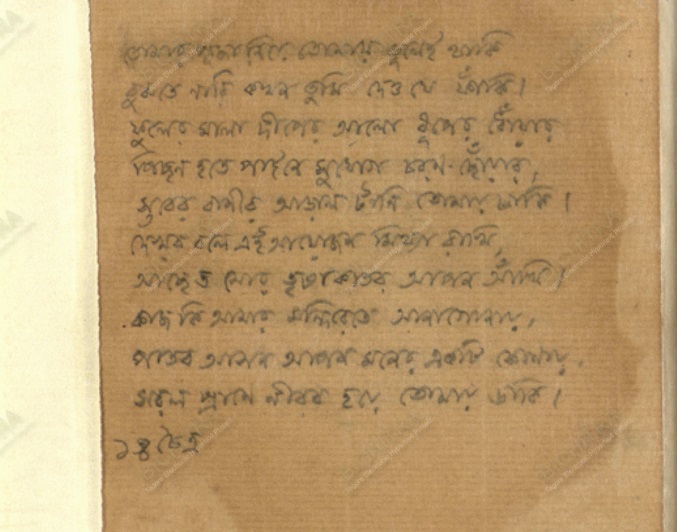 তোমার পূজার ছলে তোমায় ভুলেই থাকি
বুঝতে নারি কখন তুমি দাও যে ফাঁকি।
ফুলের মালা দীপের আলো ধূপের ধোঁয়ার
পিছন হতে পাইনে সুযোগ চরণ-ছোঁয়ার,
স্তবের বাণীর আড়াল টানি তোমায় ঢাকি।
দেখব বলে এই আয়োজন মিথ্যা রাখি,
আছে ত মোর তৃষাকাতর আপন আঁখি।
কাজ কি আমার মন্দিরেতে আনাগোনায়,
পাতব আসন আপন মনের একটি কোণায়,
সরল প্রাণে নীরব হয়ে তোমায় ডাকি।
১৪ চৈত্র